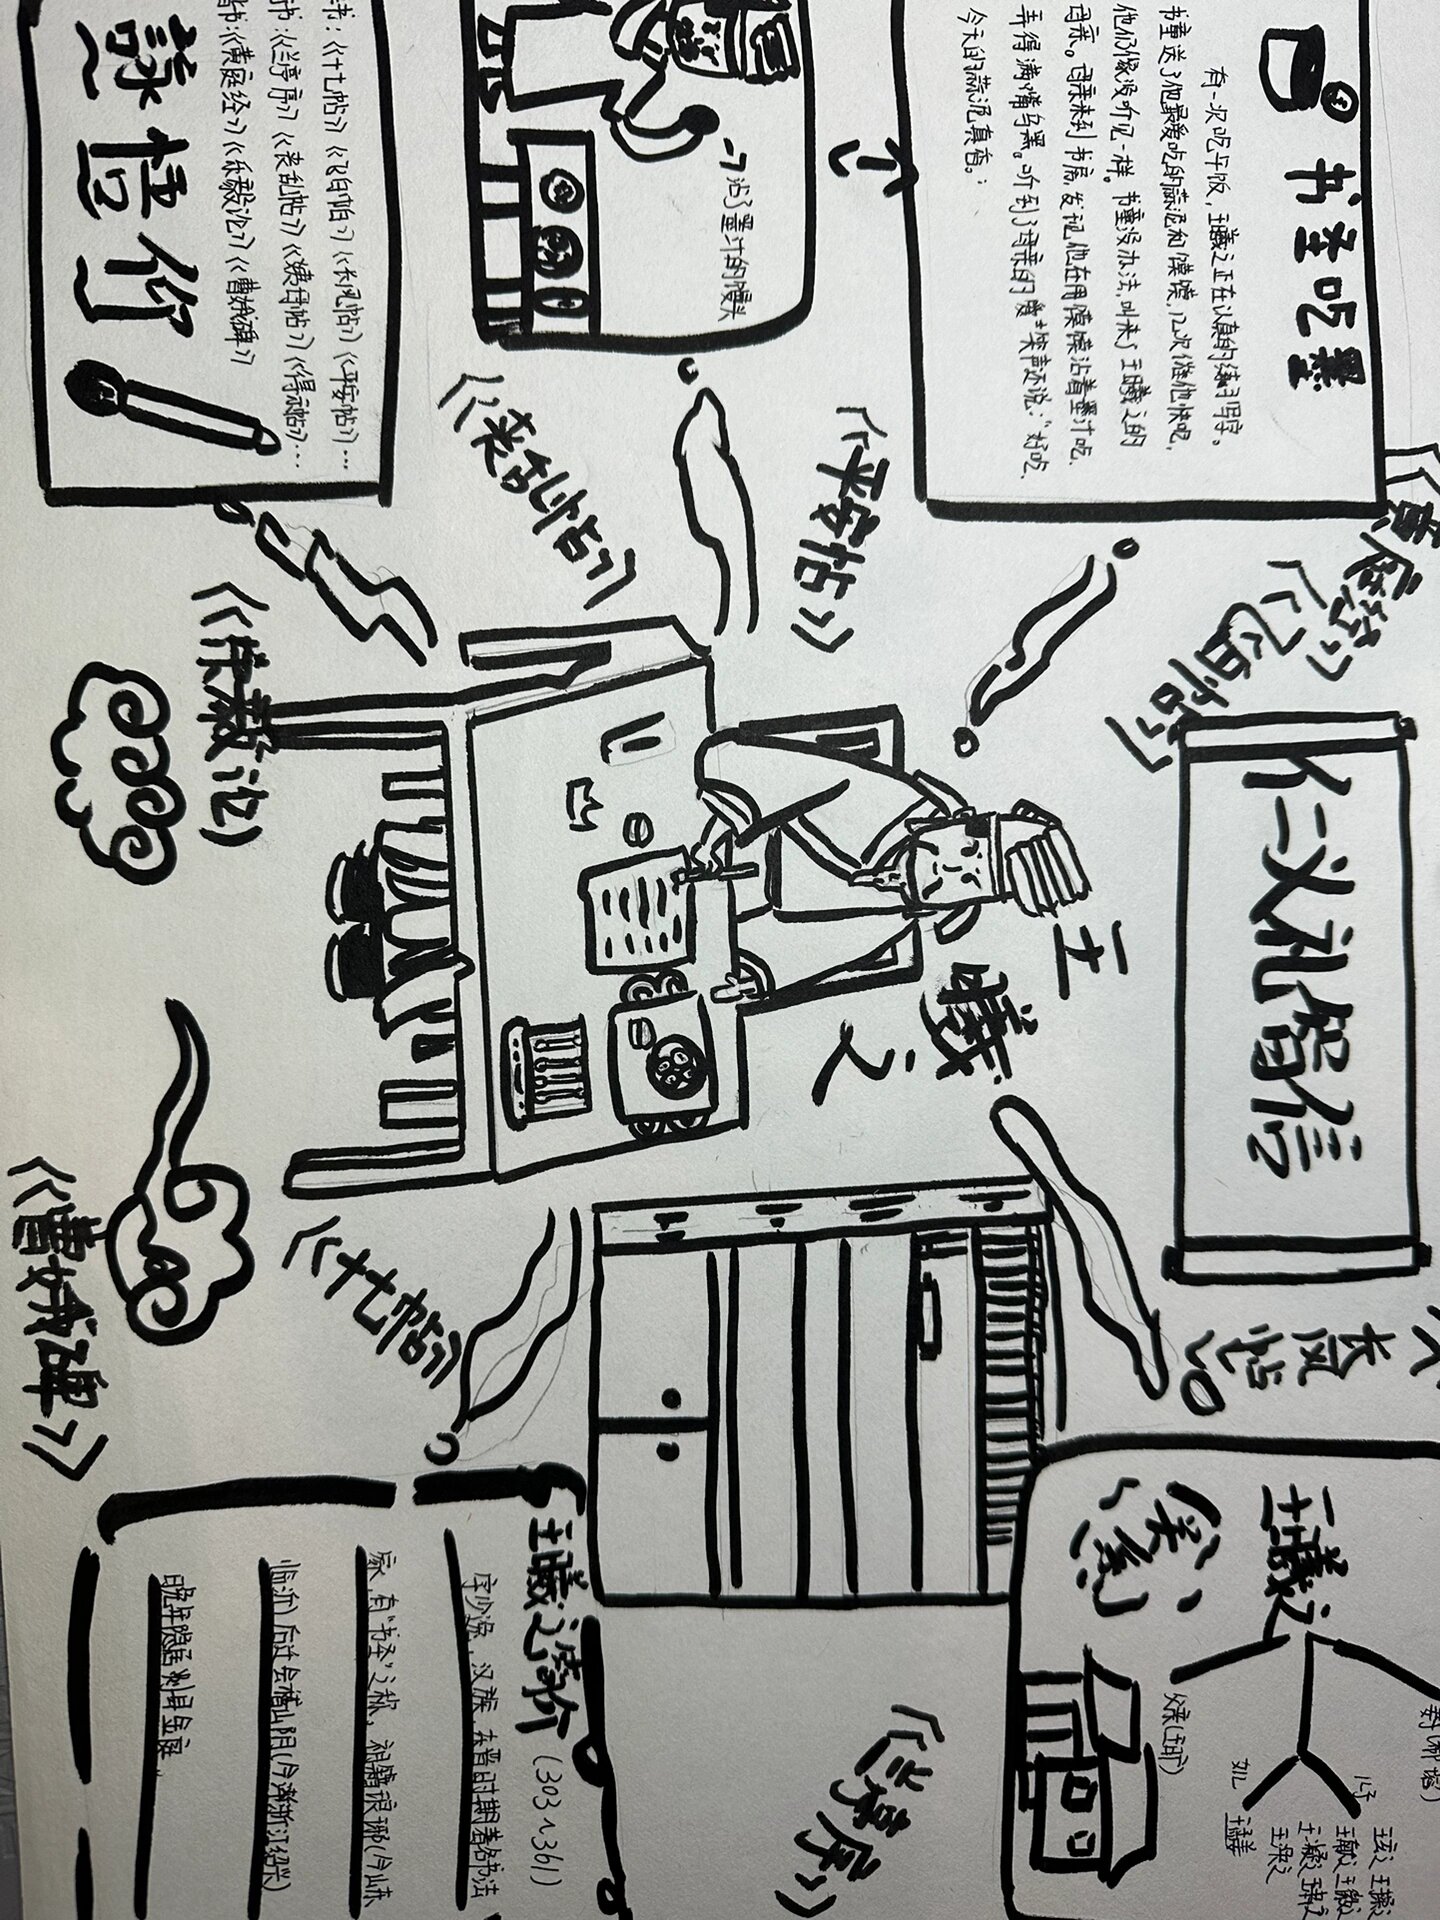 书圣吃墨
有一次吃午饭,王羲之正在认真的练习写字。
书童送了他最爱吃的蒜泥和馍馍,几次催他快吃,
他仍像没听见一样。书童没办法,叫来了王羲之的
母亲。母亲来到书房,发现他在用馍馍沾着墨汁吃,
弄得满嘴乌黑。听到了母亲的 笑声还说:“好吃
今天的蒜泥真香。
沾了墨汁的馒头
书:《十七帖》《飞白帖》《长风帖》《平安帖》…
书:《兰亭序》《丧乱帖》《姨母帖》《得示帖》…
书:《黄庭经》《乐毅论》《曹娥碑》
仁义礼智信
《飞白帖》
《平安帖》
《丧乱帖》
《乐毅论》
王羲之
《十七帖》
《曹娥碑》
长风帖
《兰亭序》
王羲之
关系
父亲(王旷)
儿子
女儿
王孟姜
王玄之 王操之
王献之 王徽之
王凝之 王肃之
王涣之
王羲之简介(303~361)
字少逸,汉族,东晋时期著名书法
家,有“书圣”之称,祖籍琅琊(今山东
临沂)后迁会稽山阴(今 浙江绍兴)
晚年隐居剡县金庭。